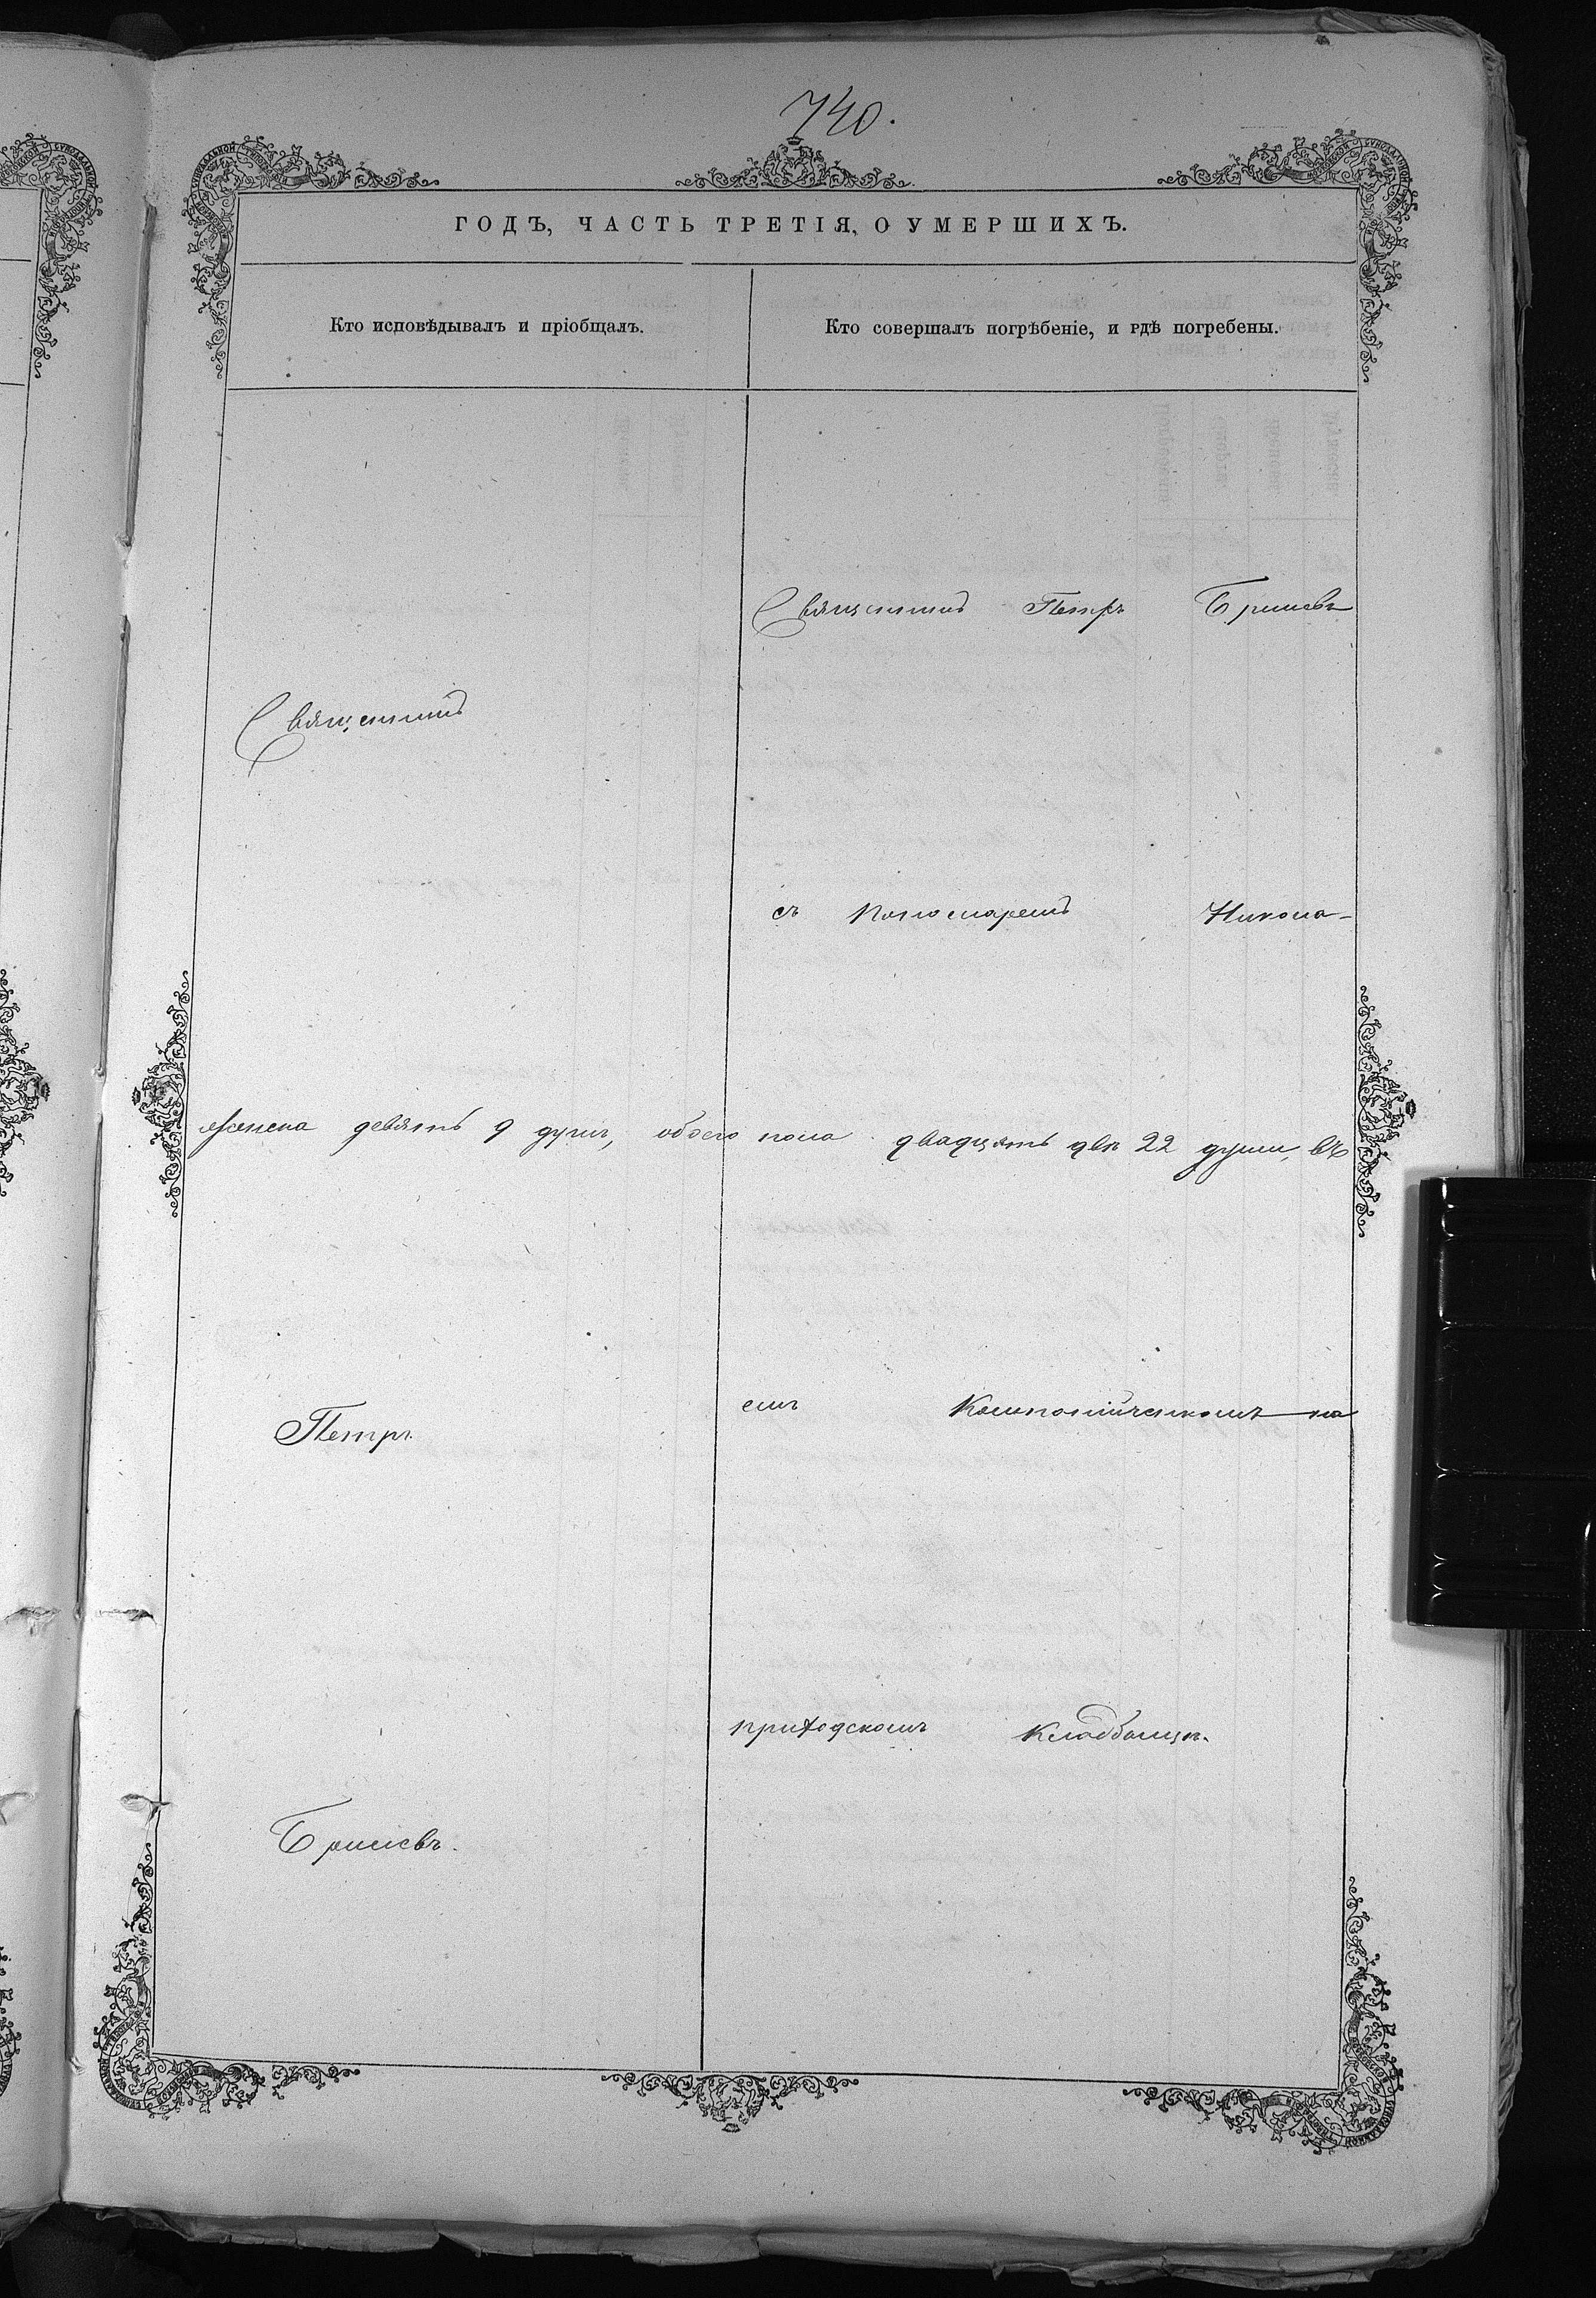 740.
ГОДЪ, ЧАСТЬ ТРЕТІЯ, О УМЕРШИХЪ.
Кто исповѣдывалъ и пріобщалъ.
Кто совершалъ погрѣбеніе, и гдѣ погребены.
Священникъ Петръ
Священникъ
съ пономаремъ Никола-
девять 9 душъ, обоего пола двадцать двѣ 22 души, въ
Петръ
емъ на
приходскомъ кладбищѣ.